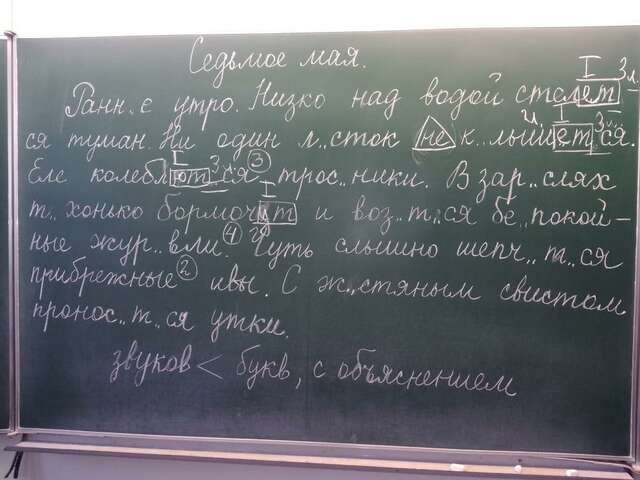 Седьмое мая.
I 3л.
Ранн..е утро. Низко над водой стелет
и.. I 3л.
ся туман. Ни один л..сток не к..лышет ся.
I 3
Еле колеблют ся ③ трос..ники. В зар..слях
I
т..хонько бормочут и воз..т..ся бе..покой-
ные жур..вли. ④ Чуть слышно шепч..т..ся
прибрежные ② ивы. С ж..стяным свистом
пронос..т..ся утки.
звуков < букв, с объяснением